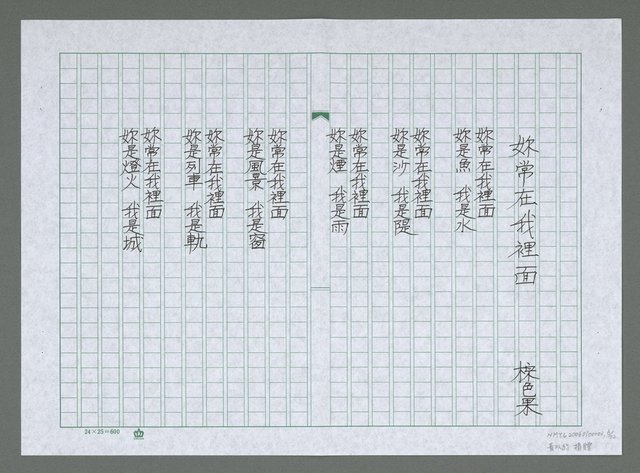 妳常在我裡面
棕色果
妳常在我裡面
妳是魚　我是水
妳常在我裡面
妳是沙　我是隄
妳常在我裡面
妳是煙　我是雨
妳常在我裡面
妳是風景　我是窗
妳常在我裡面
妳是列車　我是軌
妳常在我裡面
妳是燈火　我是城
24×25=600